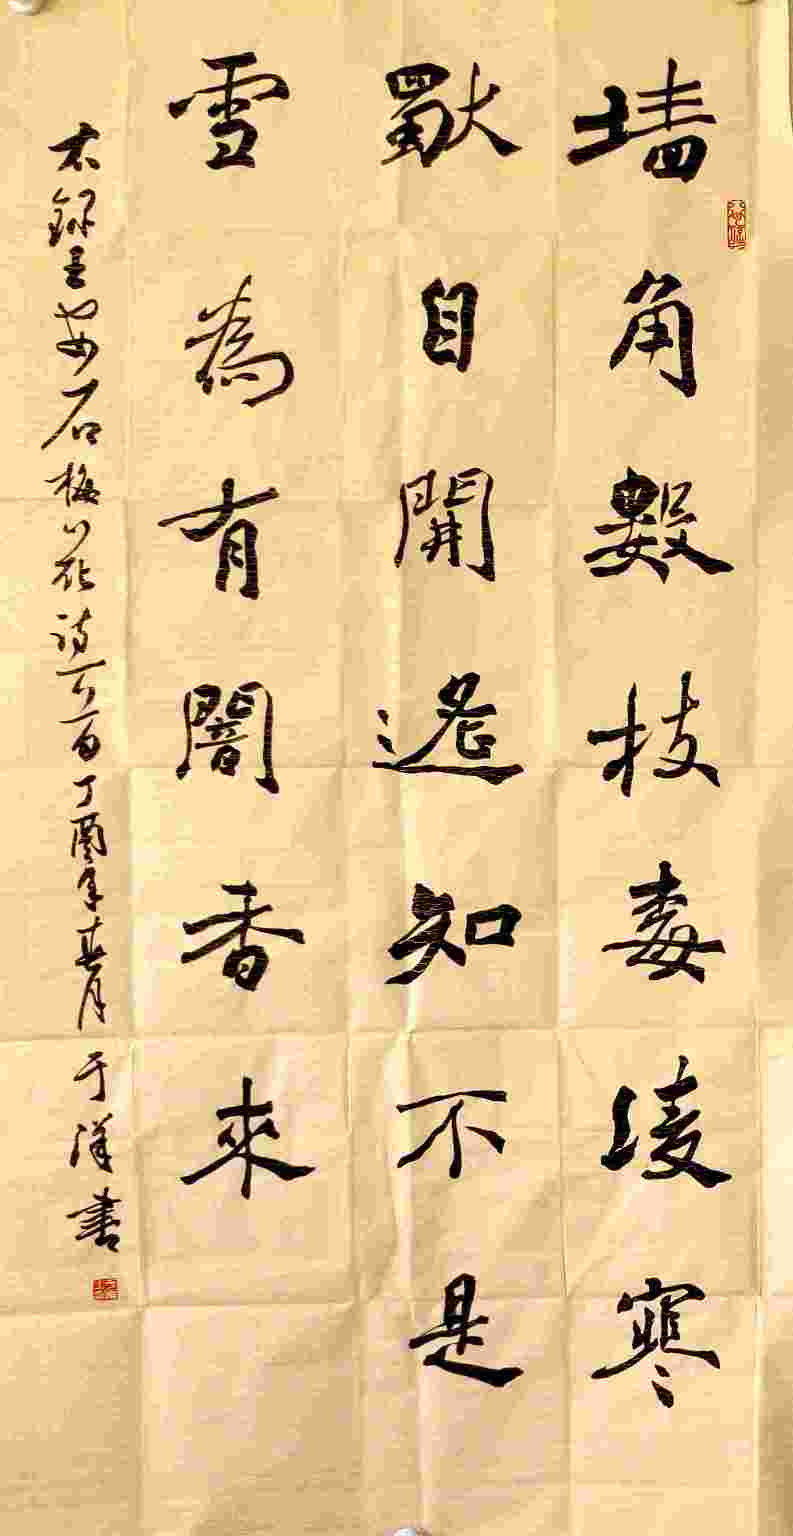 墙角數枝梅凌寒
獨自開遙知不是
雪為有闇香來
右錄王安石梅花诗一首丁酉年春月 于洋書